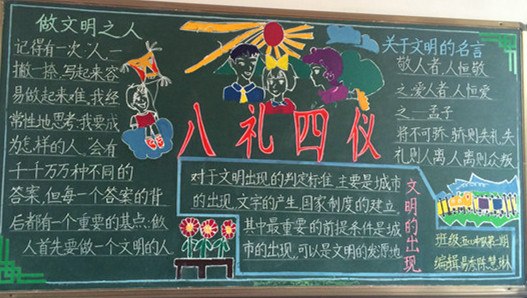 做文明之人
记得有一次:人,一
撇一捺,写起来容
易做起来难,我经
常性地思考:我要成
为怎样的人,会有
千千万万种不同的
答案,但每一个答案的背
后都有一个重要的基点:做
人首先要做一个文明的人
八礼四仪
关于文明的名言
敬人者,人恒敬
之,爱人者,人恒爱
之——孟子
将不可骄,骄则失礼,失
礼则人离,人离则众叛
对于文明出现的判定标准,主要是城市
的出现,文字的产生,国家制度的建立
其中最重要的前提条件是城
市的出现,可以是文明的发源地
文明的出现
班级
第一期
编辑